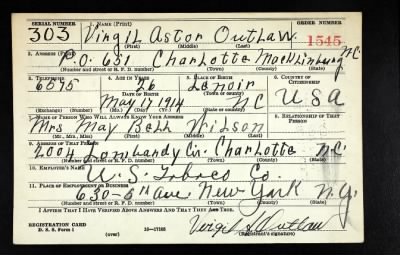 SERIAL NUMBER 1. NAME (Print) ORDER NUMBER
303 Virgil Astor Outlaw 1545
(First) (Middle) (Last)
2. ADDRESS (Print)
P.O. 651 Charlotte Mecklinburg N.C.
(Number and street or R. F. D. number) (Town) (County) (State)
3. TELEPHONE 4. AGE IN YEARS 5. PLACE OF BIRTH 6. COUNTRY OF CITIZENSHIP
6575 26 Lenoir
DATE OF BIRTH (Town or county)
May 17 1914 NC USA
(Exchange) (Number) (Mo.) (Day) (Yr.) (State or country)
7. NAME OF PERSON WHO WILL ALWAYS KNOW YOUR ADDRESS 8. RELATIONSHIP OF THAT PERSON
Mrs May Bell Wilson
(Mr., Mrs., Miss) (First) (Middle) (Last)
9. ADDRESS OF THAT PERSON
2004 Lombardy Cir. Charlotte N.C.
(Number and street or R. F. D. number) (Town) (County) (State)
10. EMPLOYER'S NAME
U.S. Tobacco Co.
11. PLACE OF EMPLOYMENT OR BUSINESS
630-5th Ave. New York N.Y.
(Number and street or R. F. D. number) (Town) (County) (State)
I AFFIRM THAT I HAVE VERIFIED ABOVE ANSWERS AND THAT THEY ARE TRUE.
REGISTRATION CARD
D. S. S. Form 1 (over) 16-17105 Virgil A Outlaw
(Registrant's signature)